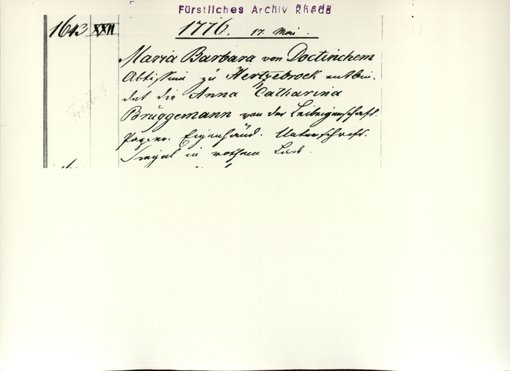 Fürstliches Archiv Rheda
1643 XXIV 1776. 17. Mai.
Maria Barbara von Doetinchem
Abtissin zu Hertzebrock entbin-
det die Anna Catharina
Brüggemann von der Leibeigenschaft.
Papier. Eigenhänd. Unterschrift.
Siegel in rothem Lack.